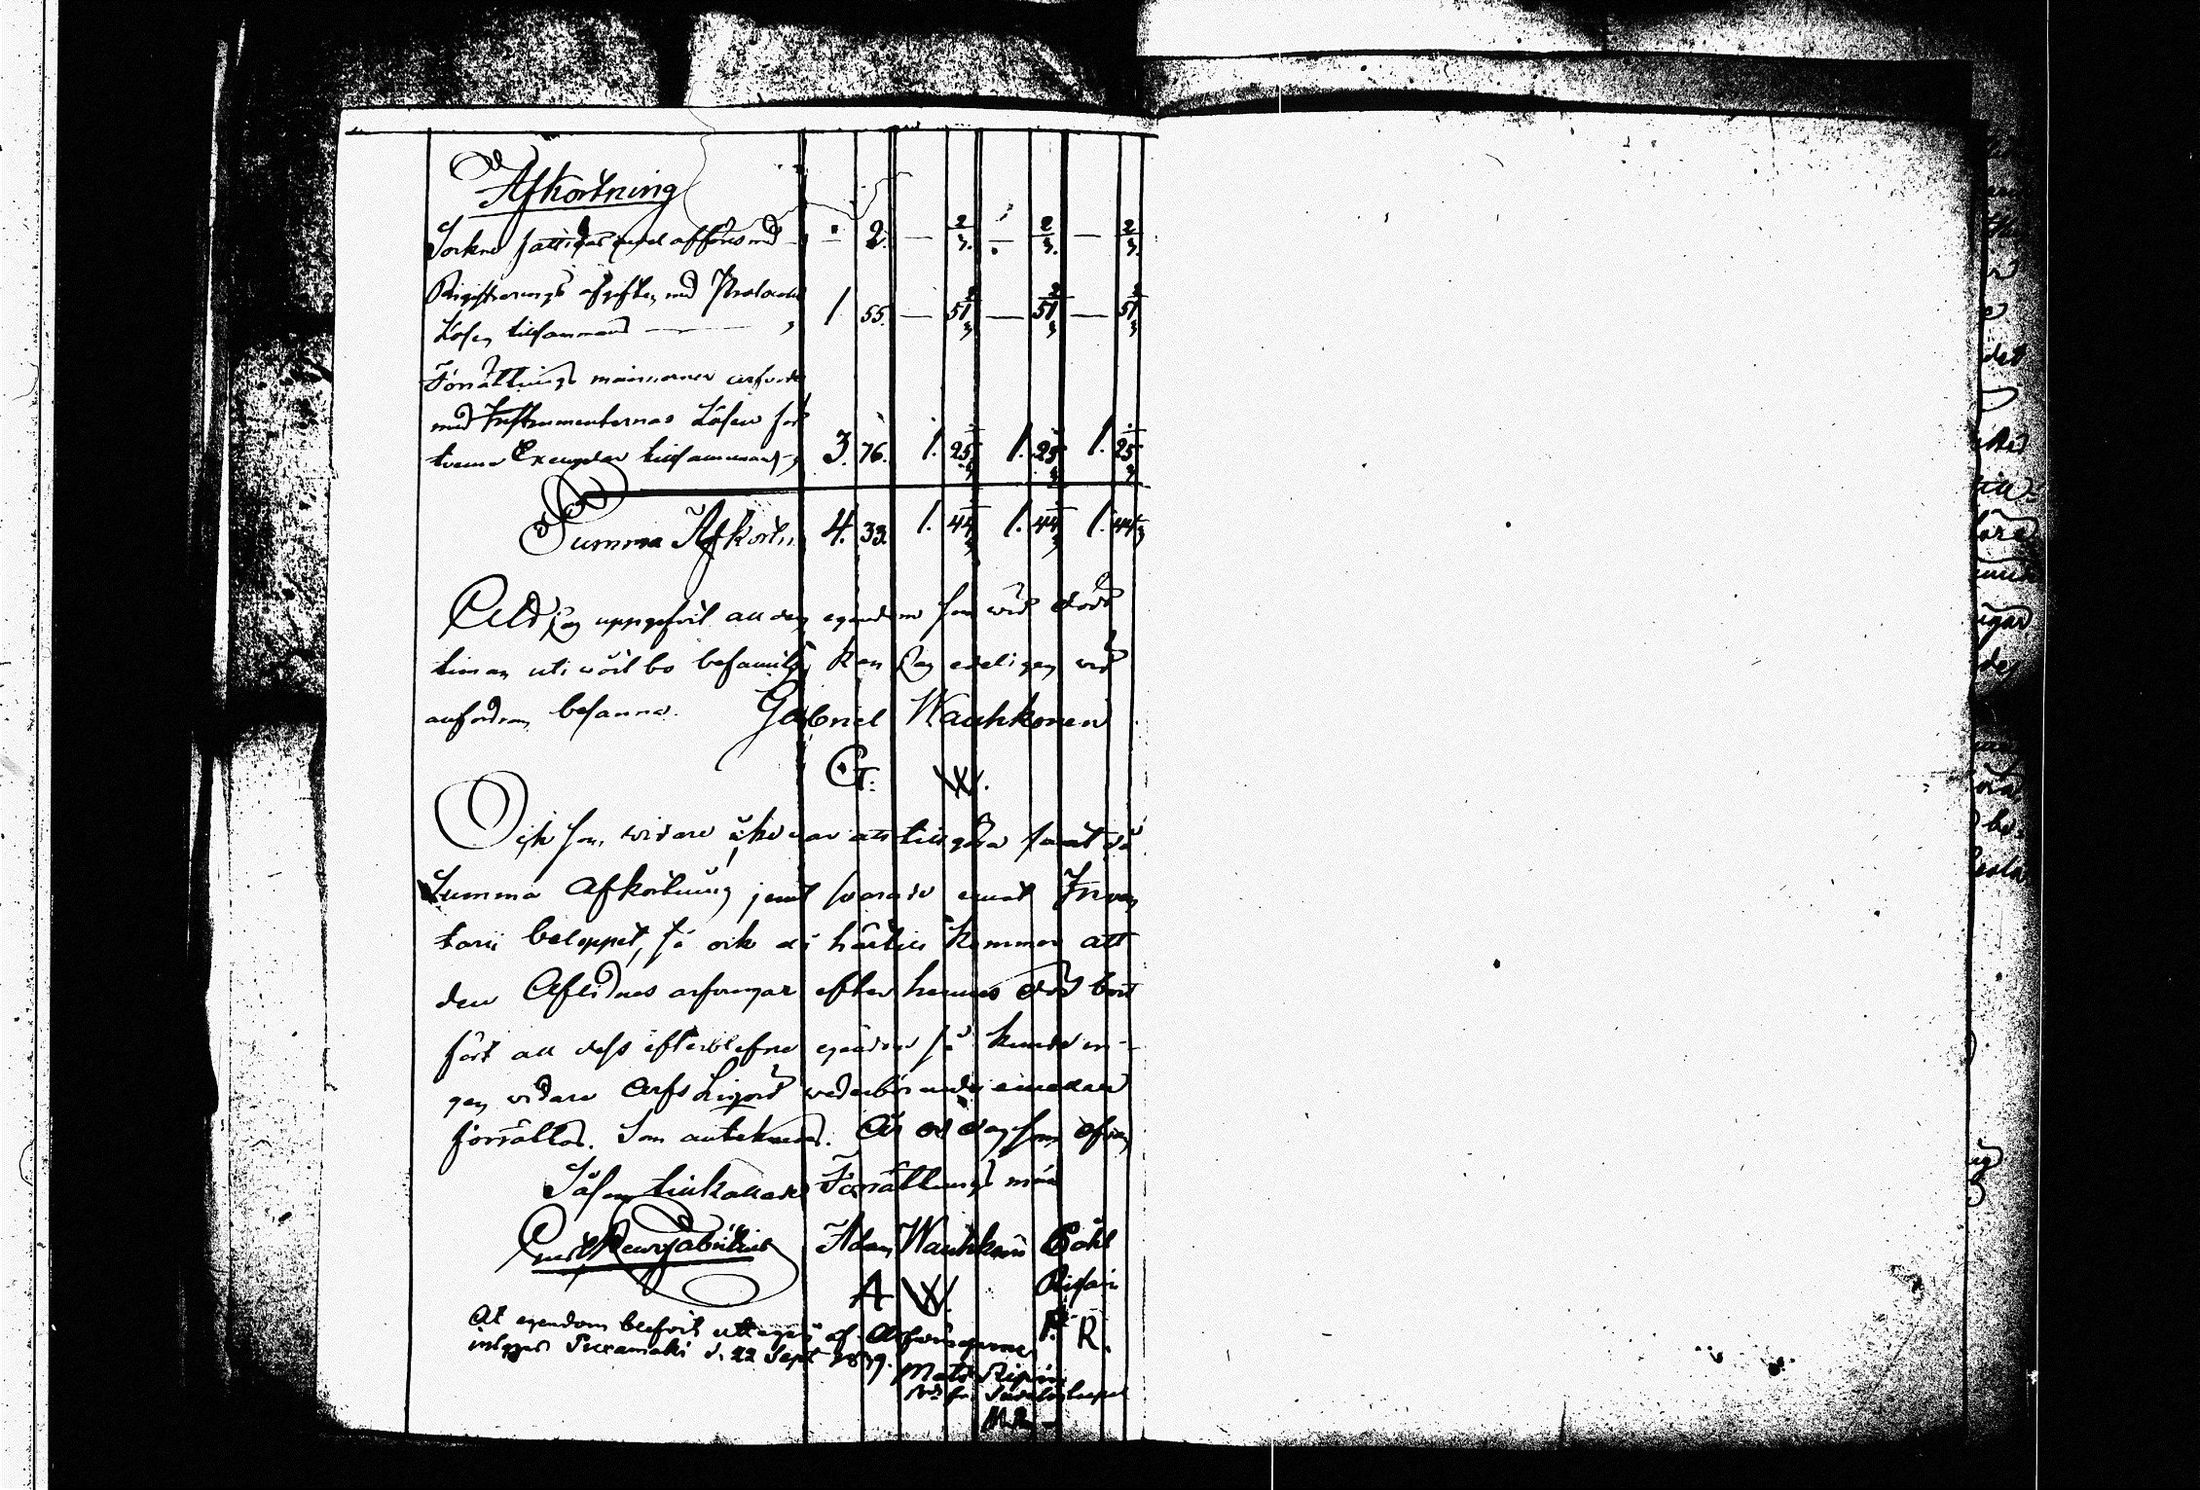 Afkortning
Sockne fattigas andel afföres med — 2. — 2/3. — 2/3. — 2/3.
Registrerings afgiften med Protocolls
Lösen tillsammans — 1 55. — 51 2/3 — 51 2/3 — 51 2/3
Förrättnings männerner arfvode
med Instrumenternas Lösen för
tvenne Exemplar tillsammans 3. 76. 1. 25 1/3 1. 25 1/3 1. 25 1/3
Summa Afkortn. 4. 33. 1. 44 1/3 1. 44 1/3 1. 44 1/3
uppgifvit all den egendom som wid döds
timan uti wårt bo befanns, kan Jag edeligen wid
anfordran besanna. Gabriel Wauhkonen
G. W.
Ock som widare icke var att tillgöra samt då
Summa Afkortning jemt svarade emot Inven
tarii beloppet, så ock då härtill kommer att
den Aflidnes arfvingar efter hennes död bort
fört all dess efterblefne egendom så kunde in-
gen widare Arfs Liqvid wederbörande emellan
förrättas. Som antecknades. År och dag som ofvan
Såsom tillkallade Förrättnings män
Adam Wauhkonen Påhl
A W. Risain
P. R.
At egendom blefvit uttagen af Arfwingarne
intygar d. 22 Sept 1839.
Mats
M. R.